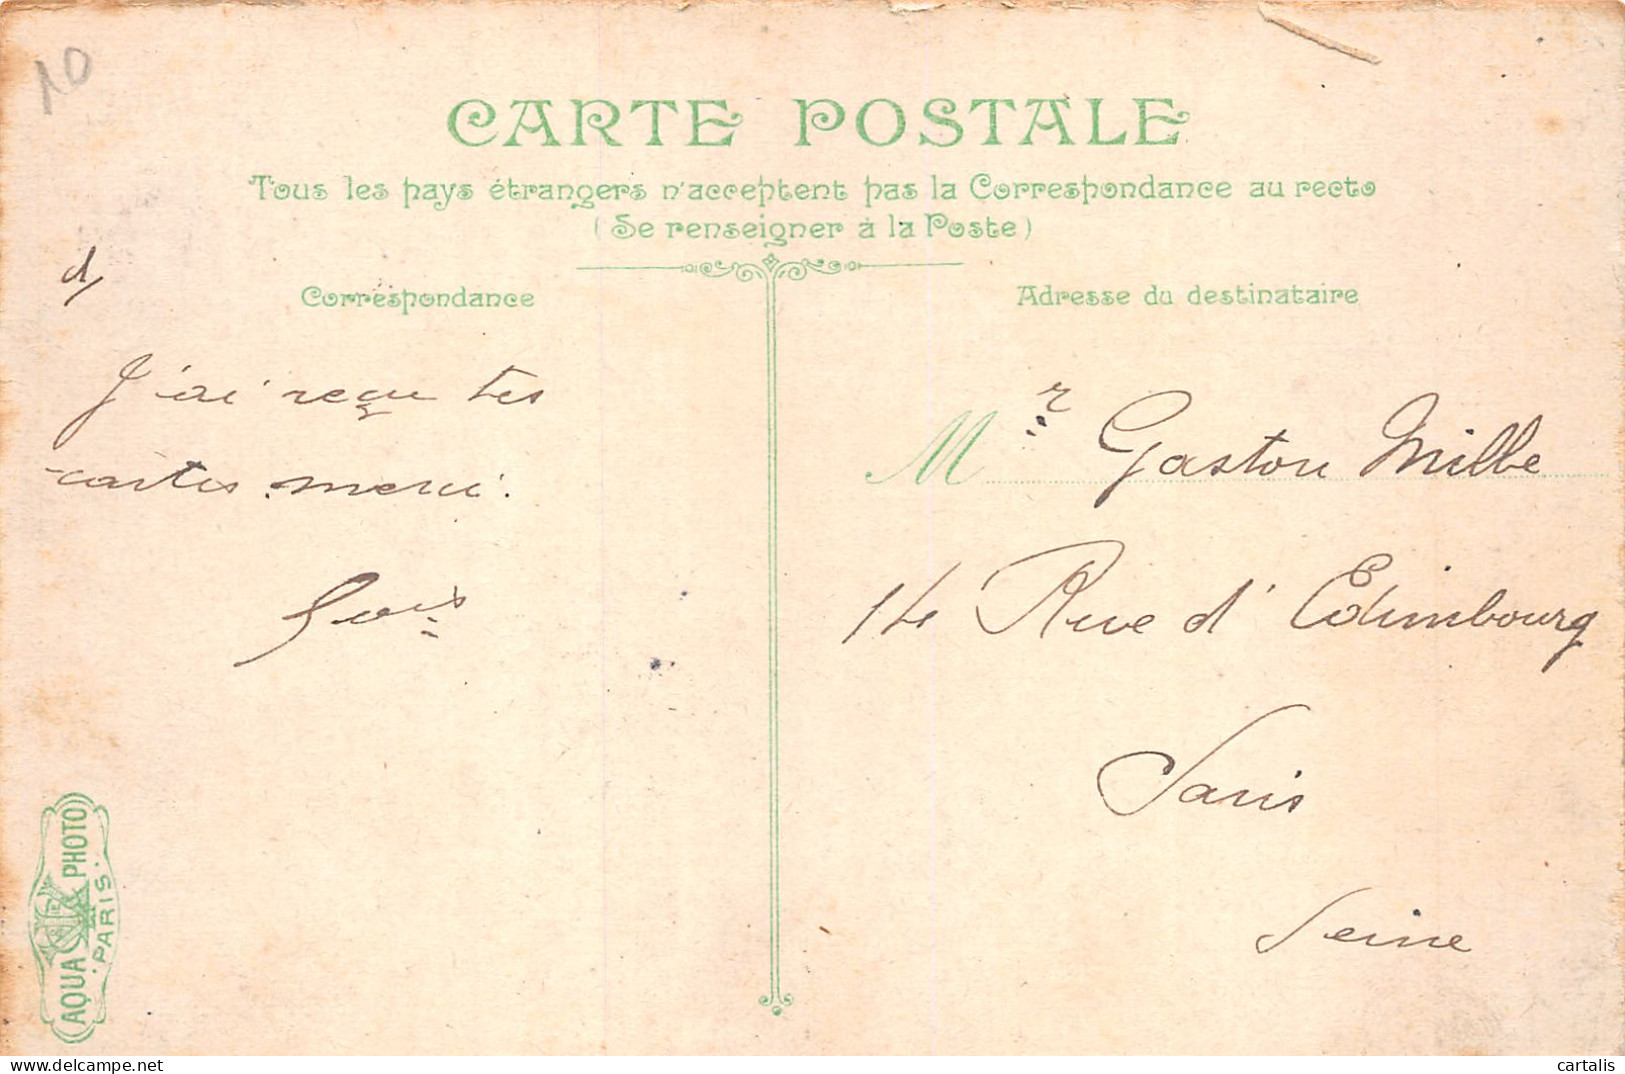 10
CARTE POSTALE
Tous les pays étrangers n'acceptent pas la Correspondance au recto
(Se renseigner à la Poste)
Correspondance
Adresse du destinataire
J'ai reçu tes
cartes merci.
Mr Gaston Mille
14 Rue d'Edimbourg
Paris
Seine
AQUA PHOTO
PARIS
cartalis